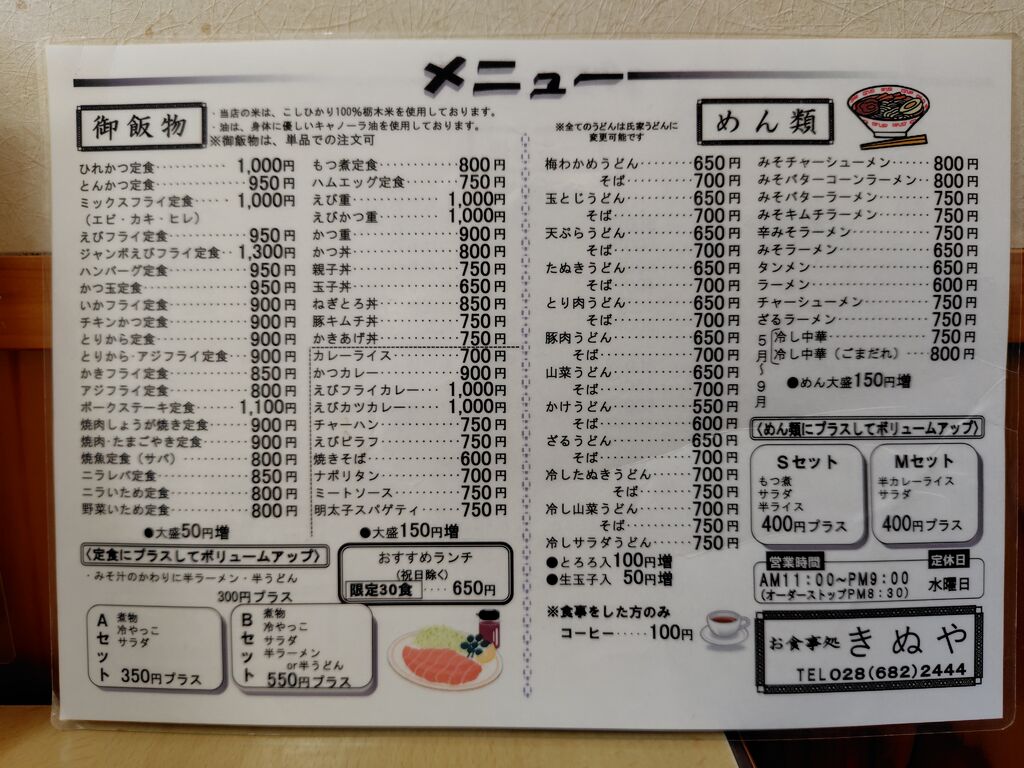 メニュー
御飯物
・当店の米は、こしひかり100%栃木米を使用しております。
・油は、身体に優しいキャノーラ油を使用しております。
※御飯物は、単品での注文可
ひれかつ定食 1,000円
とんかつ定食 950円
ミックスフライ定食 1,000円
(エビ・カキ・ヒレ)
えびフライ定食 950円
ジャンボえびフライ定食 1,300円
ハンバーグ定食 950円
かつ玉定食 950円
いかフライ定食 900円
チキンかつ定食 900円
とりから定食 900円
とりから・アジフライ定食 900円
かきフライ定食 850円
アジフライ定食 800円
ポークステーキ定食 1,100円
焼肉しょうが焼き定食 900円
焼肉・たまごやき定食 900円
焼魚定食(サバ) 800円
ニラレバ定食 850円
ニラいため定食 800円
野菜いため定食 800円
●大盛50円増
もつ煮定食 800円
ハムエッグ定食 750円
えび重 1,000円
えびかつ重 1,000円
かつ重 900円
かつ丼 800円
親子丼 750円
玉子丼 650円
ねぎとろ丼 850円
豚キムチ丼 750円
かきあげ丼 750円
カレーライス 700円
かつカレー 900円
えびフライカレー 1,000円
えびカツカレー 1,000円
チャーハン 750円
えびピラフ 750円
焼きそば 600円
ナポリタン 700円
ミートソース 750円
明太子スパゲティ 750円
●大盛150円増
〈定食にプラスしてボリュームアップ〉
・みそ汁のかわりに半ラーメン・半うどん
300円プラス
Aセット
煮物
冷やっこ
サラダ
350円プラス
Bセット
煮物
冷やっこ
サラダ
半ラーメン
or半うどん
550円プラス
おすすめランチ
(祝日除く)
限定30食 650円
めん類
※全てのうどんは氏家うどんに
変更可能です
梅わかめうどん 650円
そば 700円
玉とじうどん 650円
そば 700円
天ぷらうどん 650円
そば 700円
たぬきうどん 650円
そば 700円
とり肉うどん 650円
そば 700円
豚肉うどん 650円
そば 700円
山菜うどん 650円
そば 700円
かけうどん 550円
そば 600円
ざるうどん 650円
そば 700円
冷したぬきうどん 700円
そば 750円
冷し山菜うどん 700円
そば 750円
冷しサラダうどん 750円
●とろろ入100円増
●生玉子入 50円増
※食事をした方のみ
コーヒー 100円
みそチャーシューメン 800円
みそバターコーンラーメン 800円
みそバターラーメン 750円
みそキムチラーメン 750円
辛みそラーメン 750円
みそラーメン 650円
タンメン 650円
ラーメン 600円
チャーシューメン 750円
ざるラーメン 750円
5月〜9月
冷し中華 750円
冷し中華(ごまだれ) 800円
●めん大盛150円増
〈めん類にプラスしてボリュームアップ〉
Sセット
もつ煮
サラダ
半ライス
400円プラス
Mセット
半カレーライス
サラダ
400円プラス
営業時間
AM11:00~PM9:00
(オーダーストップPM8:30)
定休日
水曜日
お食事処 きぬや
TEL028(682)2444